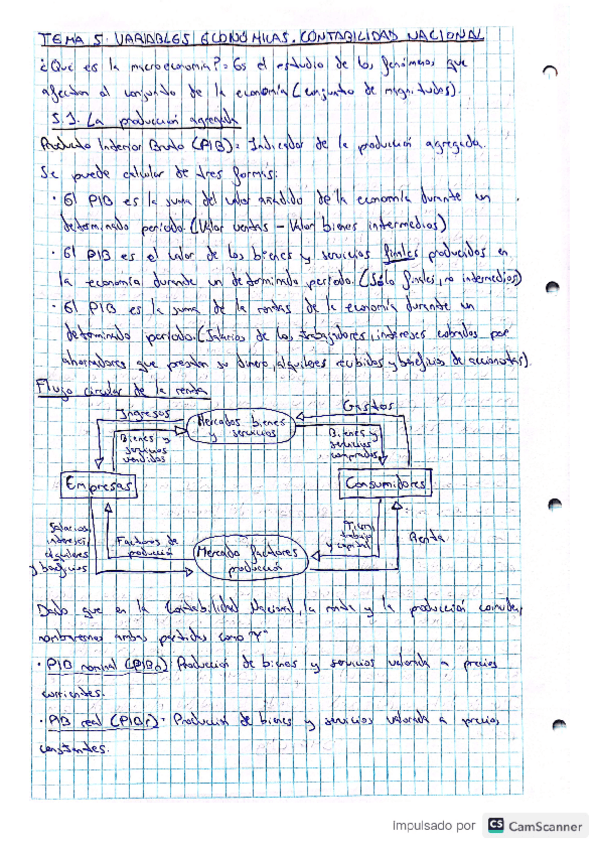 TEMA 5. VARIABLES ECONÓMICAS. CONTABILIDAD NACIONAL
¿Que es la macroeconomía? = Es el estudio de los fenómenos que
afectan al conjunto de la economía (conjunto de magnitudes).
5.1. La producción agregada
Producto Interior Bruto (PIB) = Indicador de la producción agregada.
Se puede calcular de tres formas:
· El PIB es la suma del valor añadido de la economía durante un
determinado periodo. (Valor ventas - Valor bienes intermedios)
· El PIB es el valor de los bienes y servicios finales producidos en
la economía durante un determinado periodo. (Sólo finales, no intermedios)
· El PIB es la suma de la rentas de la economía durante un
determinado periodo. (Salarios de los trabajadores, intereses cobrados por
ahorradores que prestan su dinero, alquileres recibidos y beneficios de accionistas).
Flujo circular de la renta
Ingresos
Mercados bienes
y servicios
Gastos
Bienes y
servicios
vendidos
Bienes y
servicios
comprados
Empresas
Consumidores
Salarios,
intereses,
alquileres
y beneficios
Factores de
producción
Mercado factores
producción
Tierra,
trabajo
y capital
Renta
Dado que en la Contabilidad Nacional, la renta y la producción coinciden,
nombraremos ambas partidas como "Y"
· PIB nominal (PIBn) Producción de bienes y servicios valorada a precios
corrientes.
· PIB real (PIBr) = Producción de bienes y servicios valorada a precios
constantes.
Impulsado por CS CamScanner